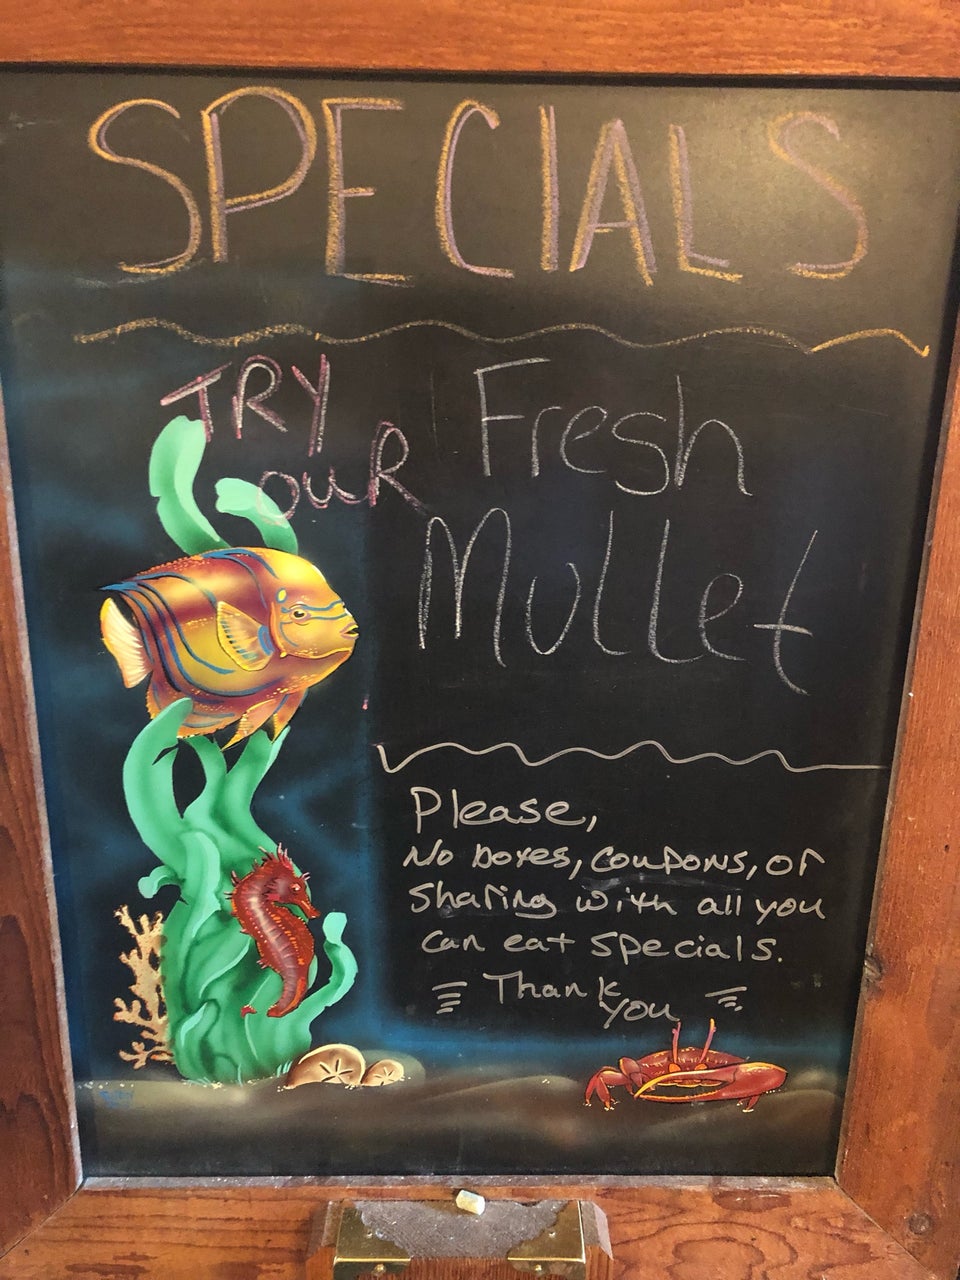 SPECIALS
TRY
OUR
Fresh
Mullet
Please,
No boxes, Coupons, or
Sharing with all you
can eat specials.
Thank
you